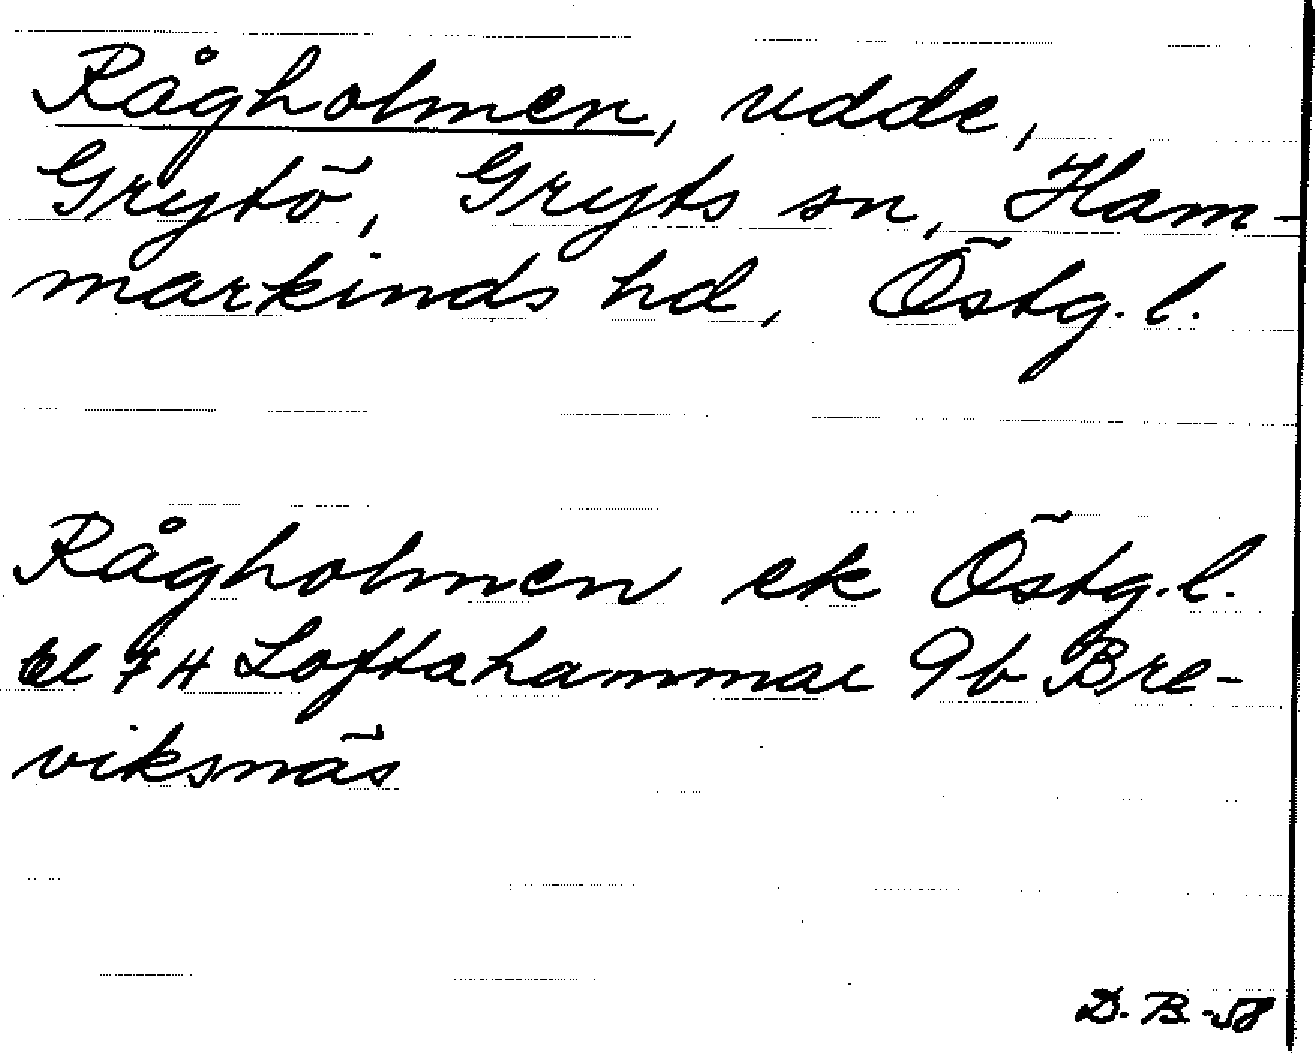 Rågholmen, udde,
Grytö, Gryts sn, Ham-
markinds hd, Östg. l.
Rågholmen ek Östg. l.
bl 7H Loftahammar 9b Bre-
viksnäs
D. B. -58